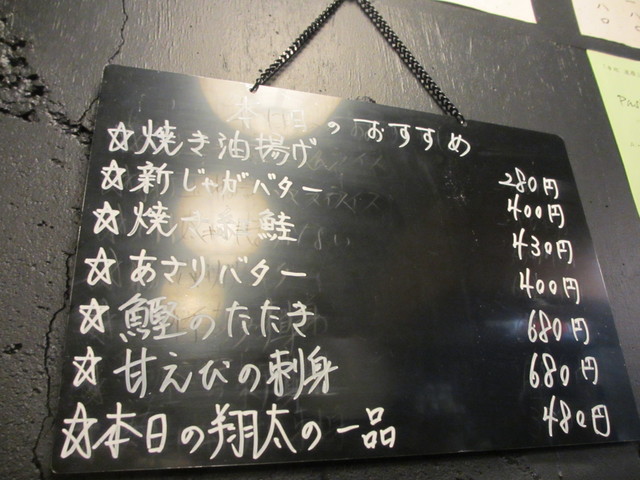 本日のおすすめ
☆焼き油揚げ 280円
☆新じゃがバター 400円
☆焼 鮭 430円
☆あさりバター 400円
☆鰹のたたき 680円
☆甘えびの刺身 680円
☆本日の翔太の一品 480円